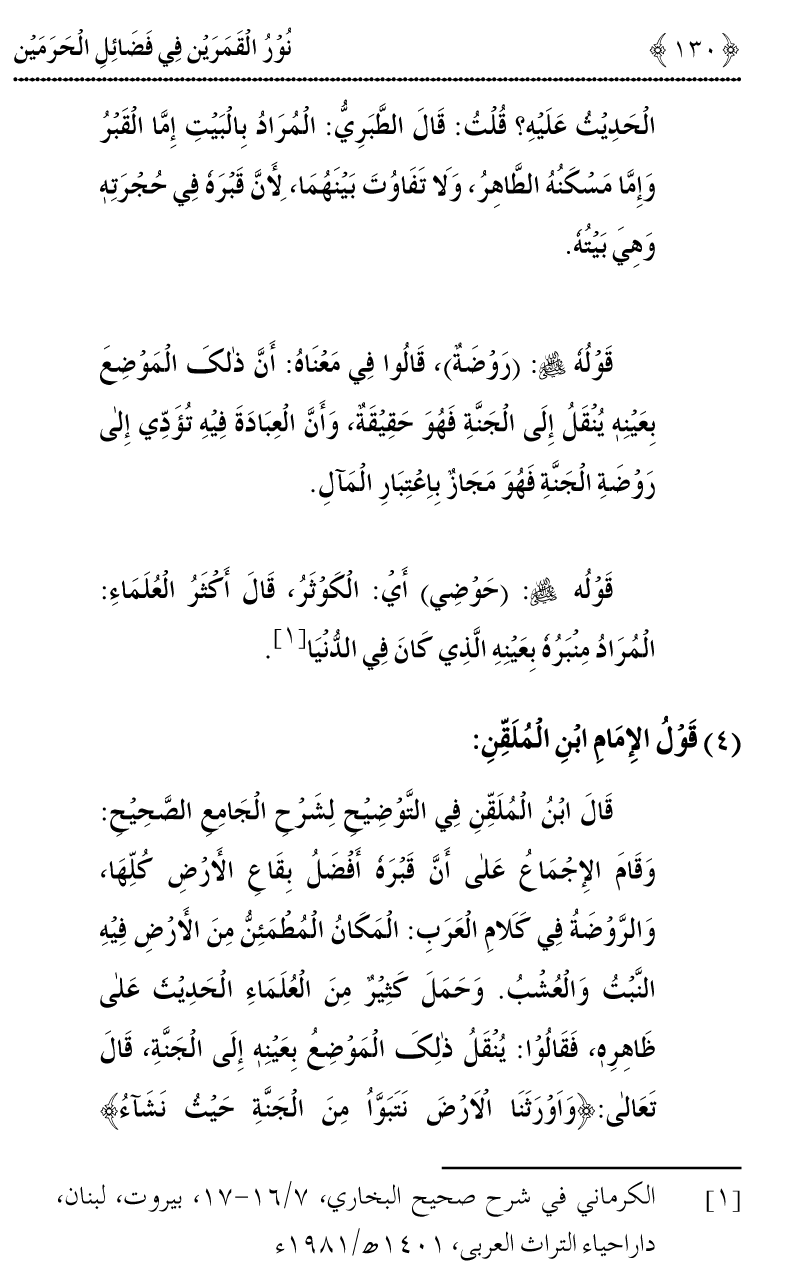 ﴿١٣٠﴾ نُوْرُ الْقَمَرَيْنِ فِي فَضَائِلِ الْحَرَمَيْنِ
الْحَدِيْثُ عَلَيْهِ؟ قُلْتُ: قَالَ الطَّبَرِيُّ: الْمُرَادُ بِالْبَيْتِ إِمَّا الْقَبْرُ
وَإِمَّا مَسْكَنُهُ الطَّاهِرُ، وَلَا تَفَاوُتَ بَيْنَهُمَا، لِأَنَّ قَبْرَهٗ فِي حُجْرَتِهٖ
وَهِيَ بَيْتُهٗ.
قَوْلُهٗ ﷺ: (رَوْضَةٌ)، قَالُوا فِي مَعْنَاهُ: أَنَّ ذٰلکَ الْمَوْضِعَ
بِعَيْنِهٖ يُنْقَلُ إِلَى الْجَنَّةِ فَهُوَ حَقِيْقَةٌ، وَأَنَّ الْعِبَادَةَ فِيْهِ تُؤَدِّي إِلٰى
رَوْضَةِ الْجَنَّةِ فَهُوَ مَجَازٌ بِاِعْتِبَارِ الْمَآلِ.
قَوْلُه ﷺ: (حَوْضِي) أَيْ: الْكَوْثَرُ، قَالَ أَكْثَرُ الْعُلَمَاءِ:
الْمُرَادُ مِنْبَرُهٗ بِعَيْنِهِ الَّذِي كَانَ فِي الدُّنْيَا[١].
(٤) قَوْلُ الإِمَامِ ابْنِ الْمُلَقِّنِ:
قَالَ ابْنُ الْمُلَقِّنِ فِي التَّوْضِيْحِ لِشَرْحِ الْجَامِعِ الصَّحِيْحِ:
وَقَامَ الإِجْمَاعُ عَلٰى أَنَّ قَبْرَهٗ أَفْضَلُ بِقَاعِ الْأَرْضِ كُلِّهَا،
وَالرَّوْضَةُ فِي كَلَامِ الْعَرَبِ: الْمَكَانُ الْمُطْمَئِنُّ مِنَ الْأَرْضِ فِيْهِ
النَّبْتُ وَالْعُشْبُ. وَحَمَلَ كَثِيْرٌ مِنَ الْعُلَمَاءِ الْحَدِيْثَ عَلٰى
ظَاهِرِهٖ، فَقَالُوْا: يُنْقَلُ ذٰلِکَ الْمَوْضِعُ بِعَيْنِهٖ إِلَى الْجَنَّةِ، قَالَ
تَعَالٰى: ﴿وَاَوْرَثَنَا الْاَرْضَ نَتَبَوَّاُ مِنَ الْجَنَّةِ حَيْثُ نَشَآءُ﴾
[١] الكرماني في شرح صحيح البخاري، ٧/١٦-١٧، بيروت، لبنان،
داراحياء التراث العربى، ١٤٠١ھ/١٩٨١ء